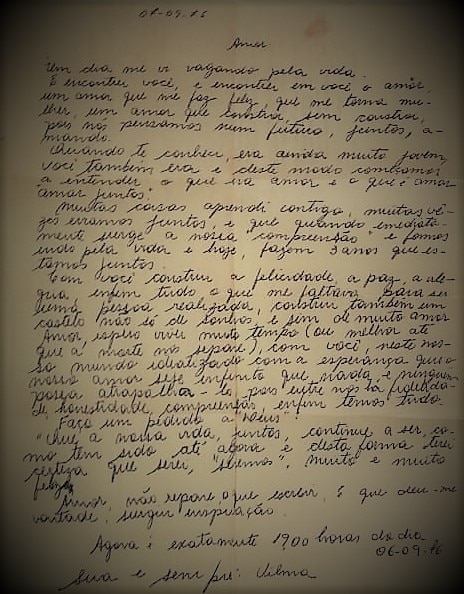 07-09-76
Amor
Um dia me vi vagando pela vida.
E encontrei você, e encontrei em você o amor,
um amor que me faz feliz, que me torna mu-
lher, um amor que constrói, sem construir,
pois nós pensamos num futuro, juntos, a-
mando.
Quando te conheci, era ainda muito jovem,
você também era e deste modo começamos
a entender o que era amor e o que é amar
"amar juntos".
Muitas coisas aprendi contigo, muitas ve-
zes erramos juntos, e que quando emediata-
mente surge a nossa "compreensão" e fomos
indo pela vida e hoje, fazem 3 anos que es-
tamos juntos.
Com você construi a felicidade, a paz, a ale-
gria, enfim tudo o que me faltava para ser
uma pessoa realizada, construi também um
castelo não só de sonhos e sim de muito amor
Amor, espero viver muito tempo (ou melhor até
que a morte nos separe) com você, neste nos-
so mundo idealizado com a esperança que o
nosso amor seje infinito que nada e ninguém
possa atrapalha-lo pois entre nós há fidelida-
de, honestidade, compreensão, enfim temos tudo.
Faço um pedido a "Deus":
"Que a nossa vida, juntos, continue a ser, co-
mo tem sido até agora e desta forma terei
certeza que serei, "seremos", muito e muito
felizes
Amor, não repare o que escrevi, é que deu-me
vontade, surgiu inspiração.
Agora é exatamente 19,00 horas do dia
06-09-76
Sua e sempre: Vilma